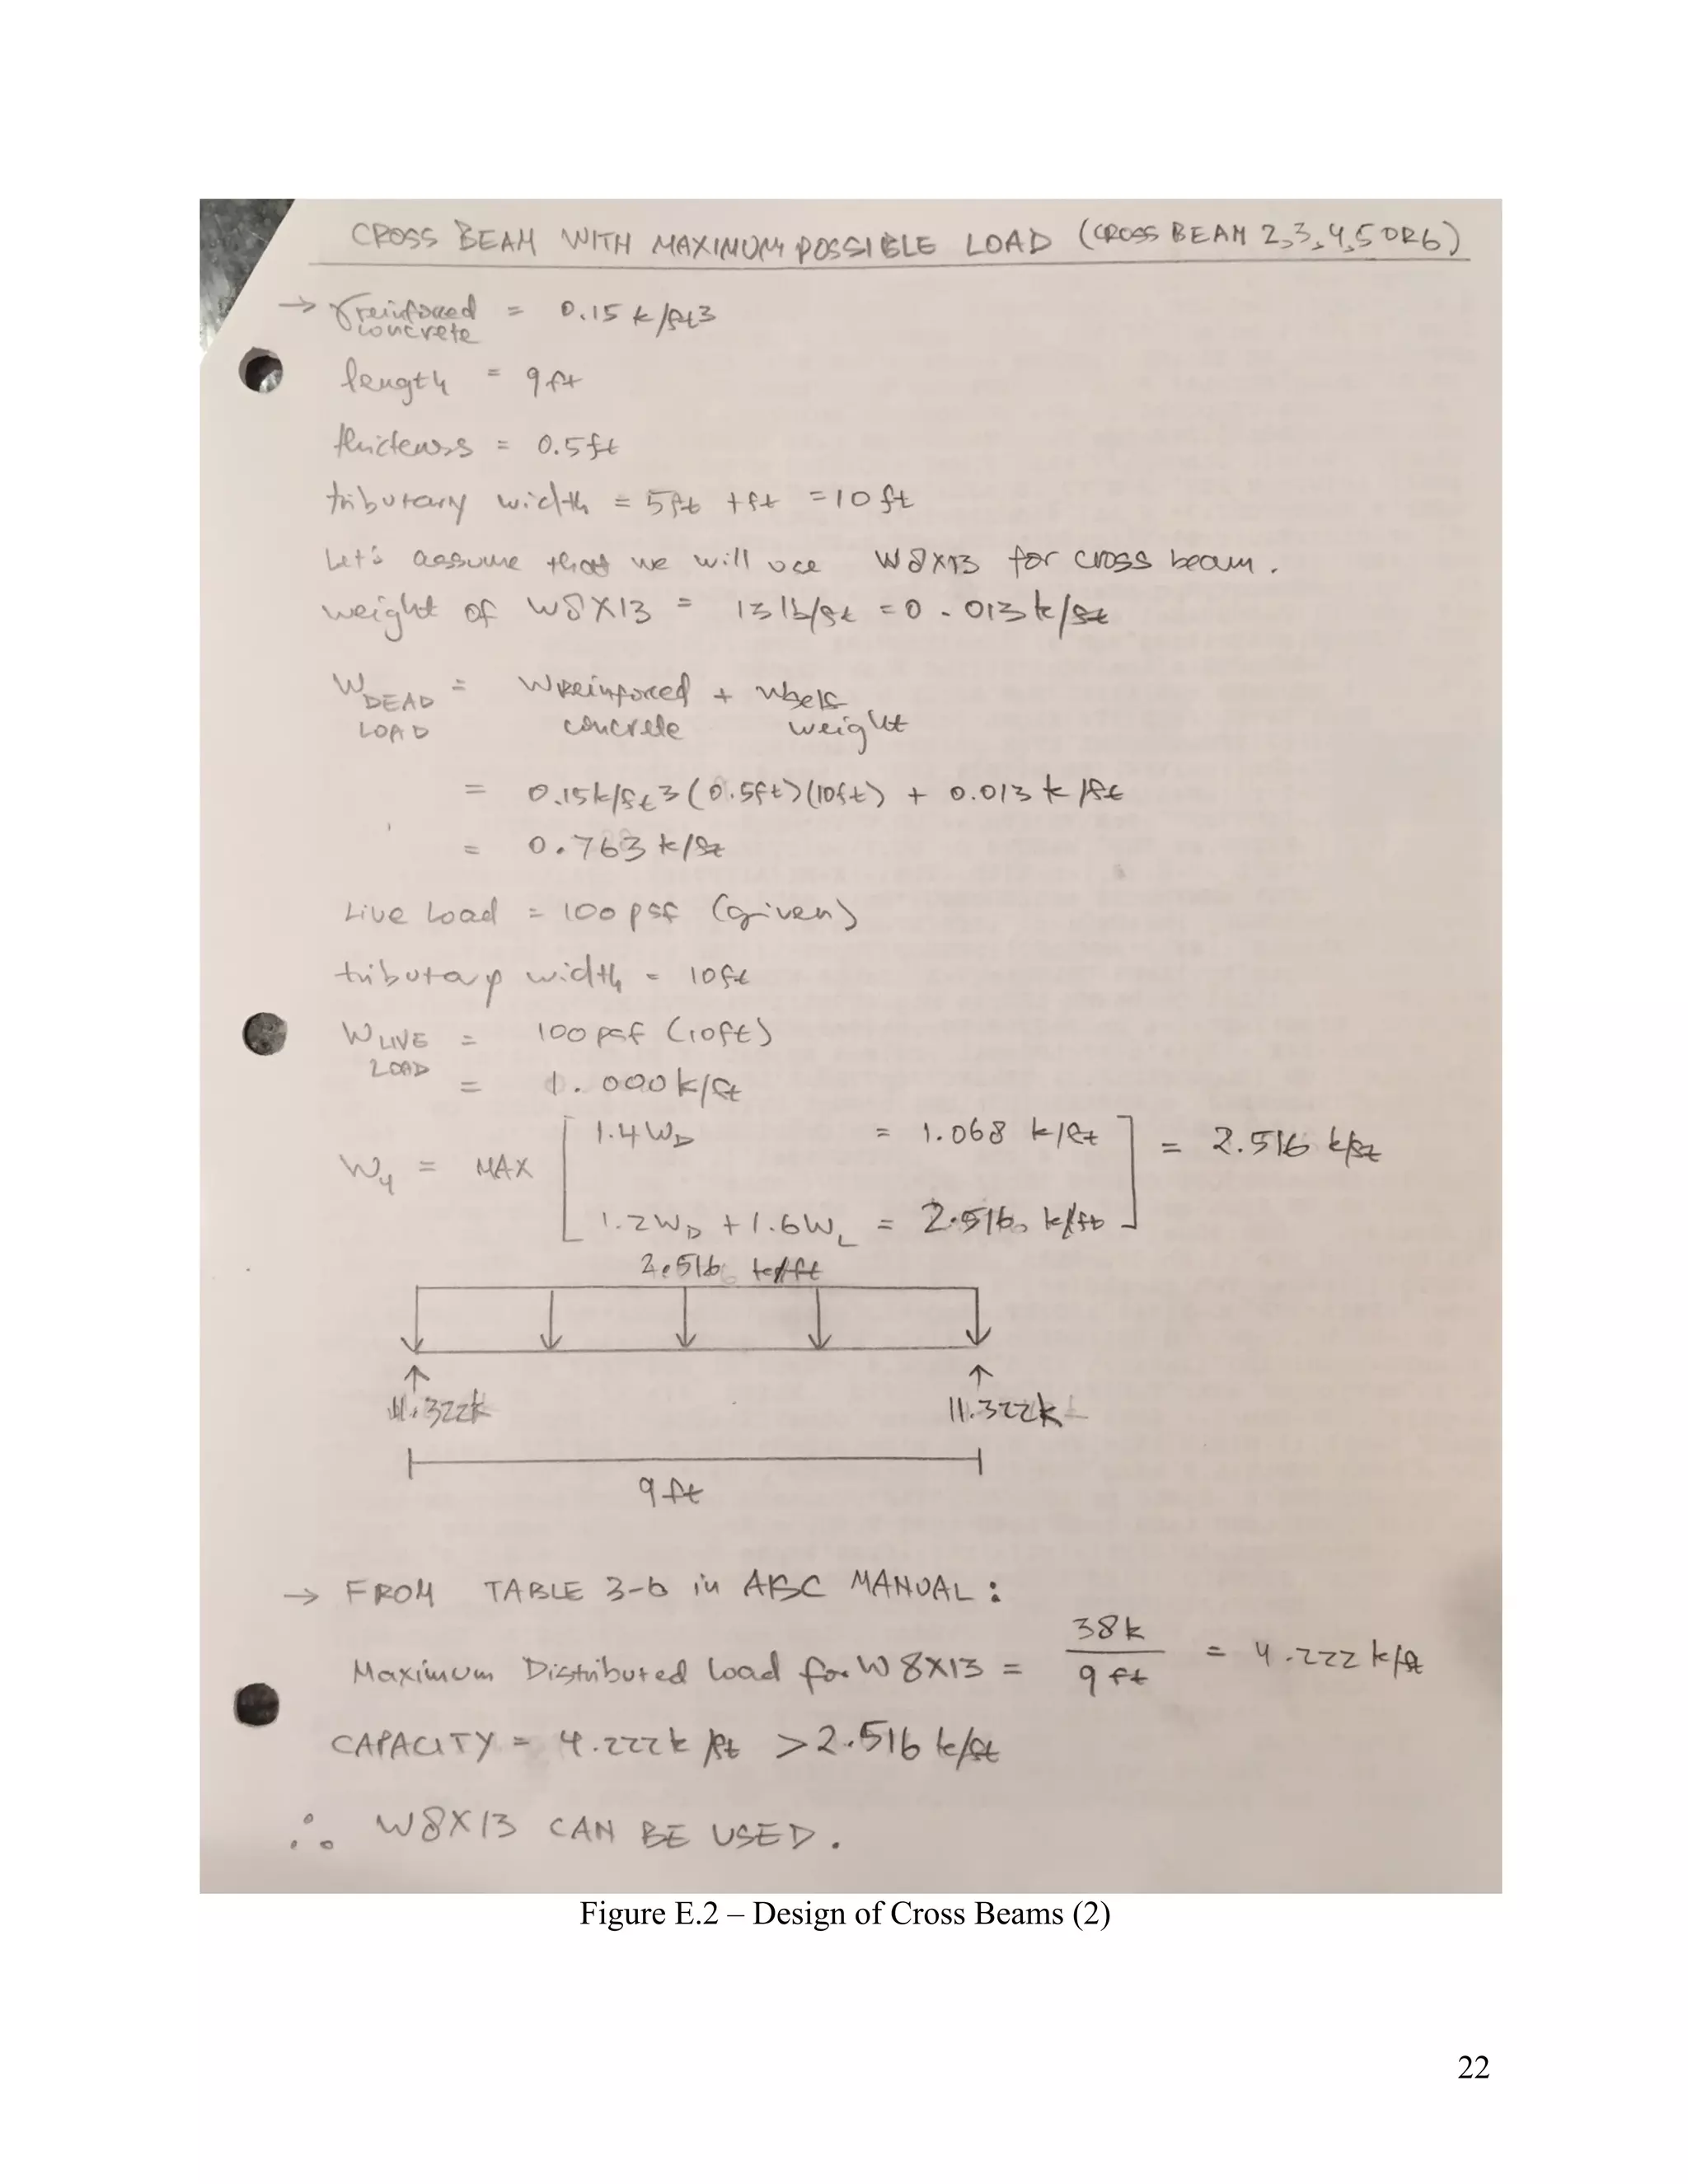 CROSS BEAM WITH MAXIMUM POSSIBLE LOAD (CROSS BEAM 2,3,4,5 OR 6)
→ γreinforced concrete = 0.15 k/ft3
length = 9 ft
thickness = 0.5 ft
tributary width = 5ft + ft = 10 ft
Let's assume that we will use W8X13 for cross beam.
weight of W8X13 = 13 lb/ft = 0.013 k/ft
W DEAD LOAD = Wreinforced concrete + Wself weight
= 0.15k/ft3 (0.5ft)(10ft) + 0.013 k/ft
= 0.763 k/ft
Live Load = 100 psf (given)
tributary width = 10ft
W LIVE LOAD = 100 psf (10ft)
= 1.000 k/ft
Wu = MAX [ 1.4 WD = 1.068 k/ft ] = 2.516 k/ft
1.2 WD + 1.6 WL = 2.516 k/ft
2.516 k/ft
11.322k 11.322k
9 ft
→ FROM TABLE 3-6 in AISC MANUAL:
Maximum Distributed Load for W8X13 = 38k / 9 ft = 4.222 k/ft
CAPACITY = 4.222 k/ft > 2.516 k/ft
∴ W8X13 CAN BE USED.
Figure E.2 – Design of Cross Beams (2)
22